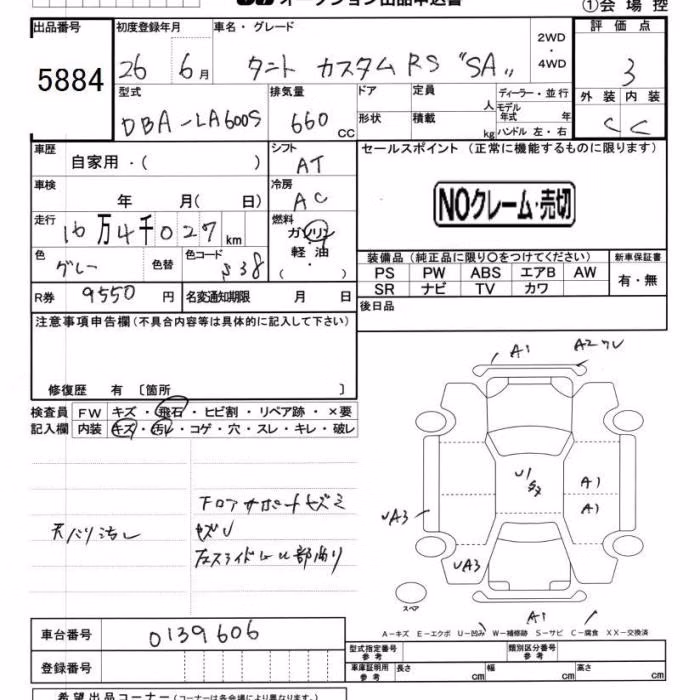 オークション出品申込書
①会場控
出品番号 初度登録年月 車名・グレード 2WD・4WD 評価点
5884 26 6月 タント カスタム RS "SA" 3
型式 排気量 ドア 定員 人 ディーラー・並行 外装 内装
DBA-LA600S 660 CC 形状 積載 kg モデル年式 年 ハンドル 左・右 C C
車歴 自家用・( ) シフト AT セールスポイント (正常に機能するものに限ります)
車検 年 月( 日) 冷房 AC NOクレーム・売切
走行 16万4千027km 燃料 ガソリン・軽油・( )
色 グレー 色替 色コード S38
装備品 (純正品に限り〇をつけてください) 新車保証書
PS PW ABS エアB AW 有・無
SR ナビ TV カワ
R券 9550円 名変通知期限 月 日 後日品
注意事項申告欄 (不具合内容等は具体的に記入して下さい)
修復歴 有〔箇所 〕
検査員 FW キズ・飛石・ヒビ割・リペア跡・×要
記入欄 内装 キズ・汚レ・コゲ・穴・スレ・キレ・破レ
A1 A2
U1 A1
A1
UA3
UA3
A1
フロアサポートキズミ
天バリ汚レ
左スライドレール部
スペア
A-キズ E-エクボ U-凹み W-補修跡 S-サビ C-腐食 XX-交換済
車台番号 0139606
登録番号
型式指定番号 参考 類別区分番号 参考
車庫証明用 参考 長さ cm 幅 cm 高さ cm
希望出品コーナー (コーナーは各会場により異なります。)